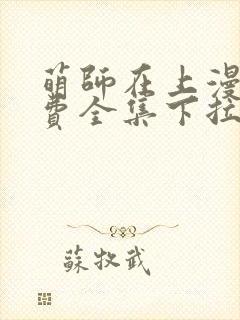 萌師在上漫
費全集下拉
蘇牧武